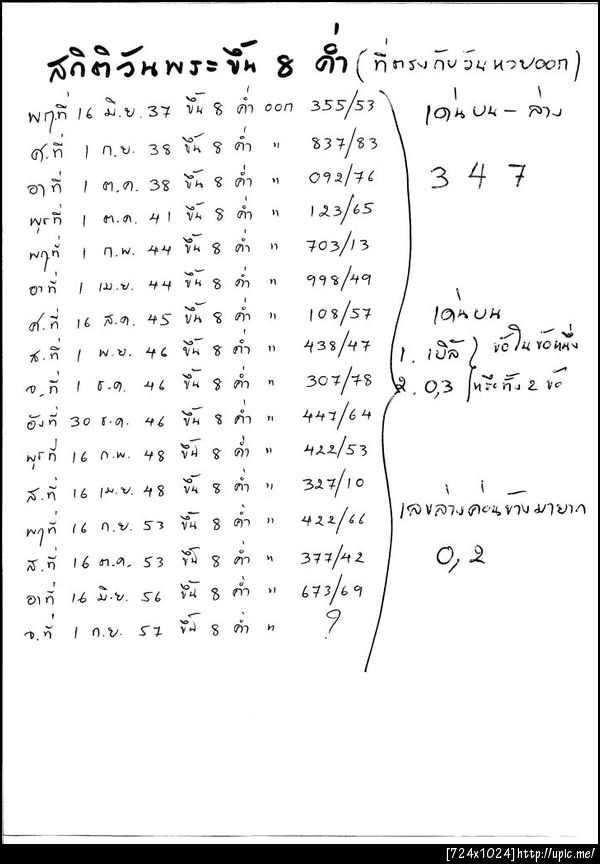 สถิติวันพระขึ้น 8 ค่ำ (ที่ตรงกับวันหวยออก)
พฤที่ 16 มิ.ย. 37 ขึ้น 8 ค่ำ ออก 355/53
ศ.ที่ 1 ก.ย. 38 ขึ้น 8 ค่ำ " 837/83
อาที่ 1 ต.ค. 38 ขึ้น 8 ค่ำ " 092/76
พุธที่ 1 ต.ค. 41 ขึ้น 8 ค่ำ " 123/65
พฤที่ 1 ก.พ. 44 ขึ้น 8 ค่ำ " 703/13
อาที่ 1 เม.ย. 44 ขึ้น 8 ค่ำ " 998/49
ศ.ที่ 16 ส.ค. 45 ขึ้น 8 ค่ำ " 108/57
ส.ที่ 1 พ.ย. 46 ขึ้น 8 ค่ำ " 438/47
จ.ที่ 1 ธ.ค. 46 ขึ้น 8 ค่ำ " 307/78
อังที่ 30 ธ.ค. 46 ขึ้น 8 ค่ำ " 447/64
พุธที่ 16 ก.พ. 48 ขึ้น 8 ค่ำ " 422/53
ส.ที่ 16 เม.ย. 48 ขึ้น 8 ค่ำ " 327/10
พฤที่ 16 ก.ย. 53 ขึ้น 8 ค่ำ " 422/66
ส.ที่ 16 ต.ค. 53 ขึ้น 8 ค่ำ " 377/42
อาที่ 16 มิ.ย. 56 ขึ้น 8 ค่ำ " 673/69
จ.ที่ 1 ก.ย. 57 ขึ้น 8 ค่ำ " ?
เด่นบน - ล่าง
3 4 7
เด่นบน
1. เบิ้ล ข้อใดข้อหนึ่ง
2. 0,3 หรือทั้ง 2 ข้อ
เลขล่างค่อนข้างมายาก
0,2
[724x1024]http://upic.me/